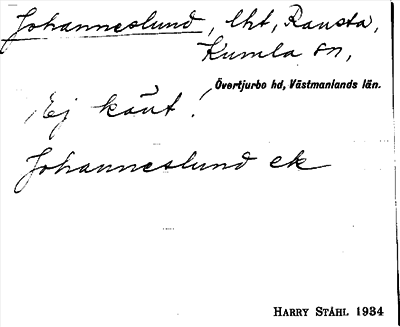 Johanneslund, lht, Ransta,
Kumla sn,
Övertjurbo hd, Västmanlands län.
Ej känt!
Johanneslund ek
HARRY STÅHL 1934